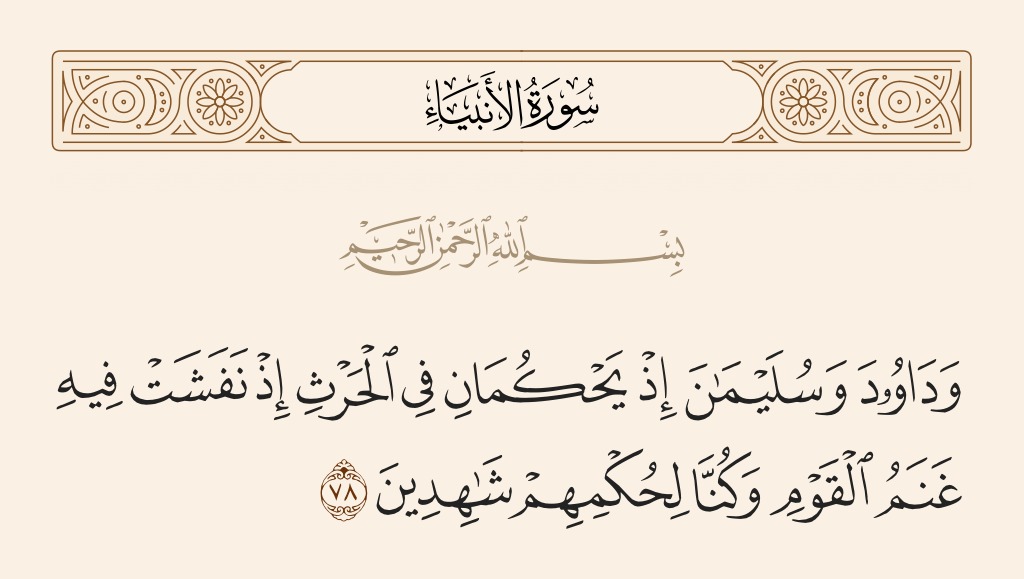 سُورَةُ الأَنبِيَاءِ
بِسْمِ ٱللَّهِ ٱلرَّحْمَٰنِ ٱلرَّحِيمِ
وَدَاوُۥدَ وَسُلَيْمَٰنَ إِذْ يَحْكُمَانِ فِى ٱلْحَرْثِ إِذْ نَفَشَتْ فِيهِ
غَنَمُ ٱلْقَوْمِ وَكُنَّا لِحُكْمِهِمْ شَٰهِدِينَ ٧٨